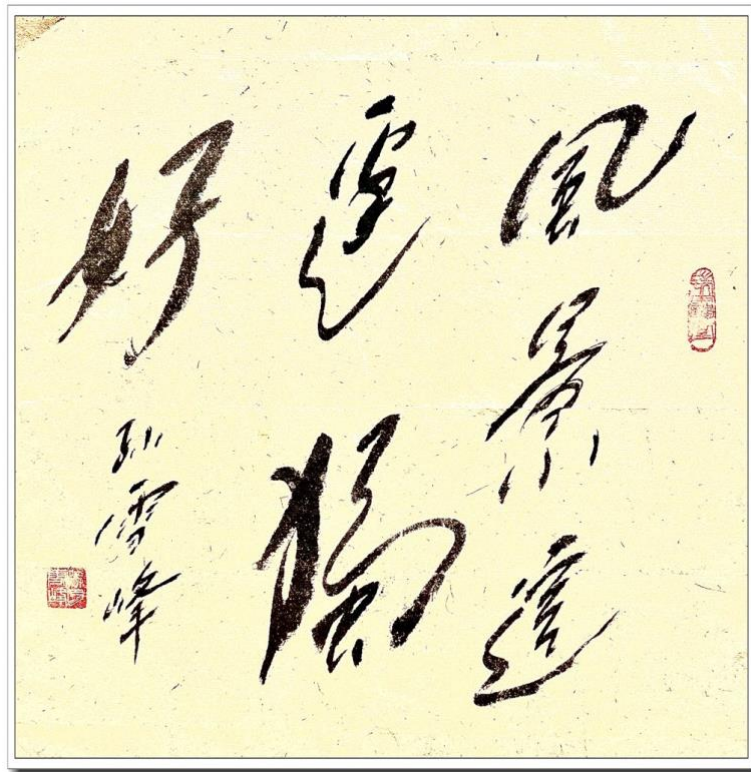 風景這
邊獨
好
孙雪峰